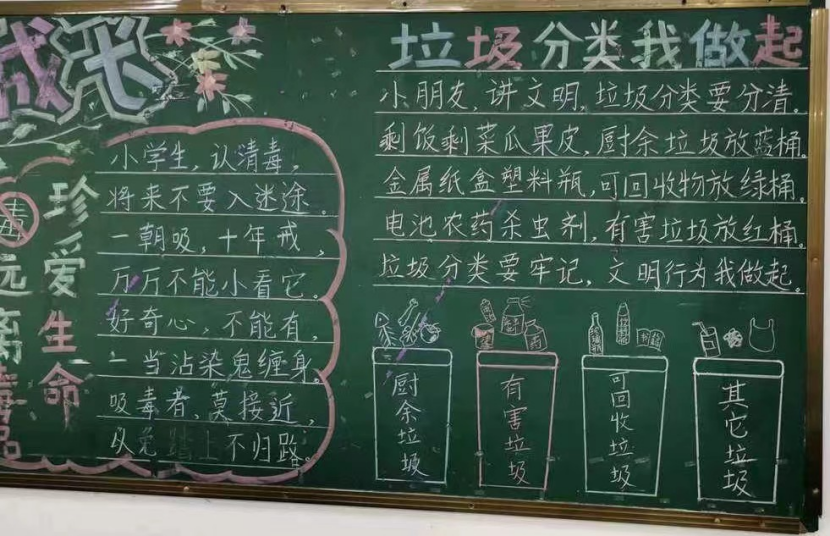 戒
毒
珍爱生命
远离毒品
小学生,认清毒,
将来不要入迷途。
一朝吸,十年戒,
万万不能小看它。
好奇心,不能有,
一当沾染鬼缠身。
吸毒者,莫接近,
以免踏上不归路。
垃圾分类我做起
小朋友,讲文明,垃圾分类要分清。
剩饭剩菜瓜果皮,厨余垃圾放蓝桶。
金属纸盒塑料瓶,可回收物放绿桶。
电池农药杀虫剂,有害垃圾放红桶。
垃圾分类要牢记,文明行为我做起。
厨余垃圾
有害垃圾
可回收垃圾
其它垃圾